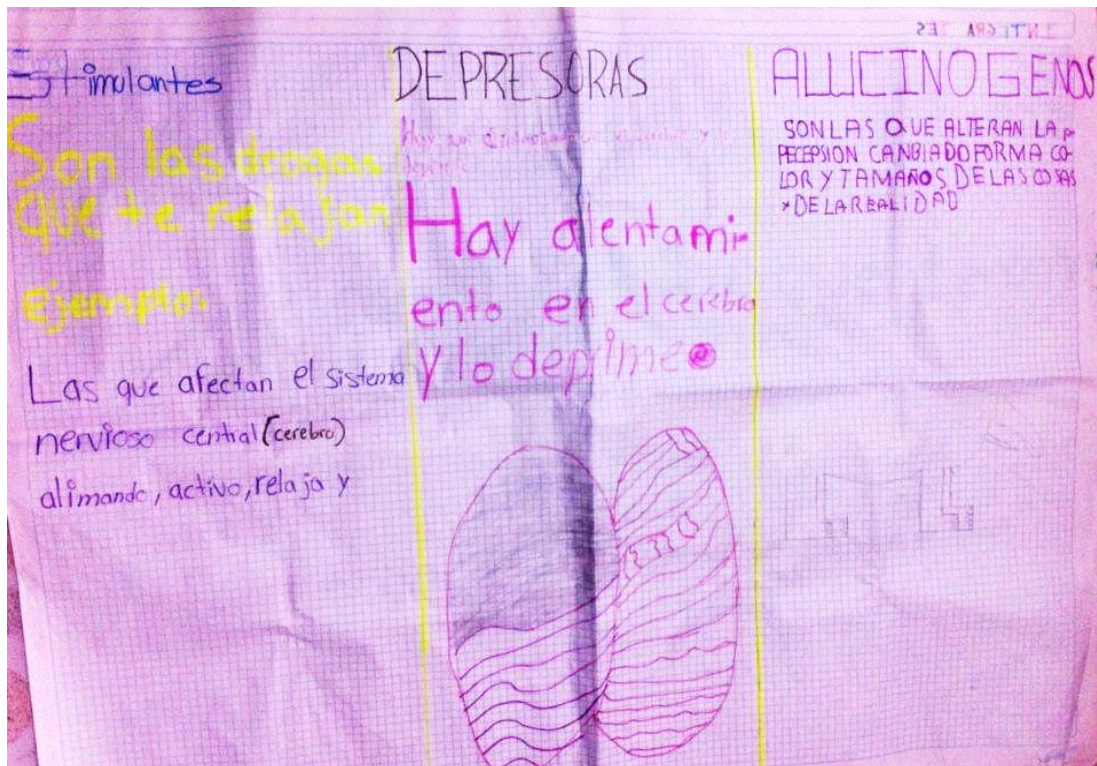 Estimulantes
Son las drogas
que te relajan
ejemplo:
Las que afectan el sistema
nervioso central (cerebro)
alimando, activo, relaja y
DEPRESORAS
Hay un
Hay alentami
ento en el cerebro
y lo deprime
ALUCINOGENOS
SON LAS QUE ALTERAN LA P
PECEPSION CANBIADO FORMA CO-
LOR Y TAMAÑOS DE LAS COSAS
Y DE LA REALIDAD